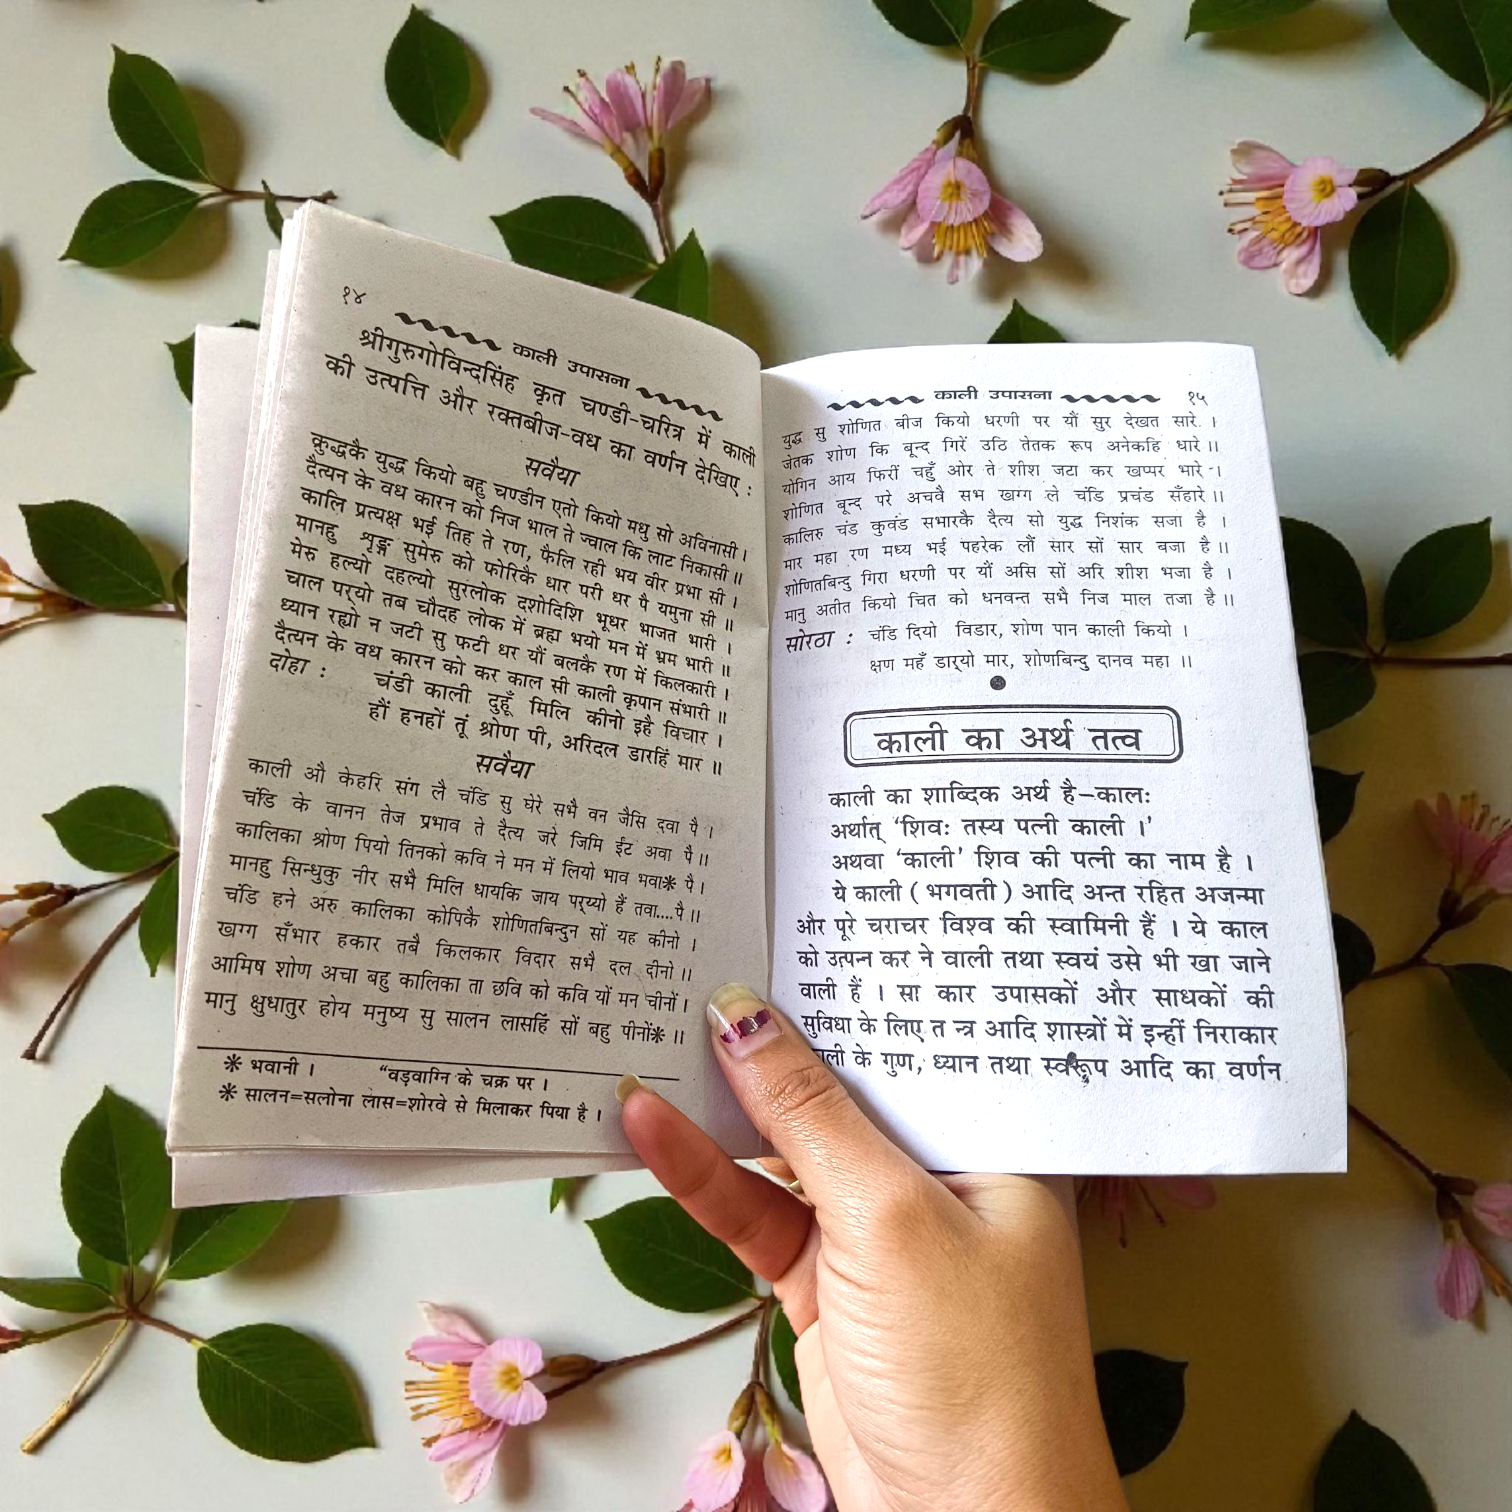 १४
काली उपासना
श्रीगुरुगोविन्दसिंह कृत चण्डी-चरित्र में काली
की उत्पत्ति और रक्तबीज-वध का वर्णन देखिए :
सवैया
क्रुद्धकै युद्ध कियो बहु चण्डीन एतो कियो मधु सो अविनासी ।
दैत्यन के वध कारन को निज भाल ते ज्वाल कि लाट निकासी ॥
कालि प्रत्यक्ष भई तिह ते रण, फैलि रही भय वीर प्रभा सी ।
मानहु शृङ्ग सुमेरु को फोरिकै धार परी धर पै यमुना सी ॥
मेरु हल्यो दहल्यो सुरलोक दशोदिशि भूधर भाजत भारी ।
चाल पर्‌यो तब चौदह लोक में ब्रह्म भयो मन में भ्रम भारी ॥
ध्यान रह्यो न जटी सु फटी धर यौं बलकै रण में किलकारी ।
दैत्यन के वध कारन को कर काल सी काली कृपान संभारी ॥
दोहा : चंडी काली दुहूँ मिलि कीनो इहै विचार ।
हौं हनहों तूं श्रोण पी, अरिदल डारहिं मार ॥
सवैया
काली औ केहरि संग लै चंडि सु घेरे सभै वन जैसि दवा पै ।
चंडि के वानन तेज प्रभाव ते दैत्य जरे जिमि ईंट अवा पै ॥
कालिका श्रोण पियो तिनको कवि ने मन में लियो भाव भवा* पै ।
मानहु सिन्धुकु नीर सभै मिलि धायकि जाय पर्‌य्यो हैं तवा....पै ॥
चंडि हने अरु कालिका कोपिकै शोणितबिन्दुन सों यह कीनो ।
खग्ग सँभार हकार तबै किलकार विदार सभै दल दीनो ॥
आमिष शोण अचा बहु कालिका ता छवि को कवि यों मन चीनों ।
मानु क्षुधातुर होय मनुष्य सु सालन लासहिं सों बहु पीनों* ॥
* भवानी । “वड़वाग्नि के चक्र पर ।
* सालन=सलोना लास=शोरवे से मिलाकर पिया है ।
काली उपासना
१५
युद्ध सु शोणित बीज कियो धरणी पर यौं सुर देखत सारे ।
जेतक शोण कि बून्द गिरें उठि तेतक रूप अनेकहि धारे ॥
योगिन आय फिरीं चहुँ ओर ते शीश जटा कर खप्पर भारे ।
शोणित बून्द परे अचवै सभ खग्ग ले चंडि प्रचंड सँहारे ॥
कालिरु चंड कुवंड सभारकै दैत्य सो युद्ध निशंक सजा है ।
मार महा रण मध्य भई पहरेक लौं सार सों सार बजा है ॥
शोणितबिन्दु गिरा धरणी पर यौं असि सों अरि शीश भजा है ।
मानु अतीत कियो चित को धनवन्त सभै निज माल तजा है ॥
सोरठा : चंडि दियो विडार, शोण पान काली कियो ।
क्षण महँ डार्‌यो मार, शोणबिन्दु दानव महा ॥
काली का अर्थ तत्व
काली का शाब्दिक अर्थ है–कालः
अर्थात् ‘शिवः तस्य पत्नी काली ।’
अथवा ‘काली’ शिव की पत्नी का नाम है ।
ये काली ( भगवती ) आदि अन्त रहित अजन्मा
और पूरे चराचर विश्व की स्वामिनी हैं । ये काल
को उत्पन्न कर ने वाली तथा स्वयं उसे भी खा जाने
वाली हैं । सा कार उपासकों और साधकों की
सुविधा के लिए त न्त्र आदि शास्त्रों में इन्हीं निराकार
काली के गुण, ध्यान तथा स्वरूप आदि का वर्णन